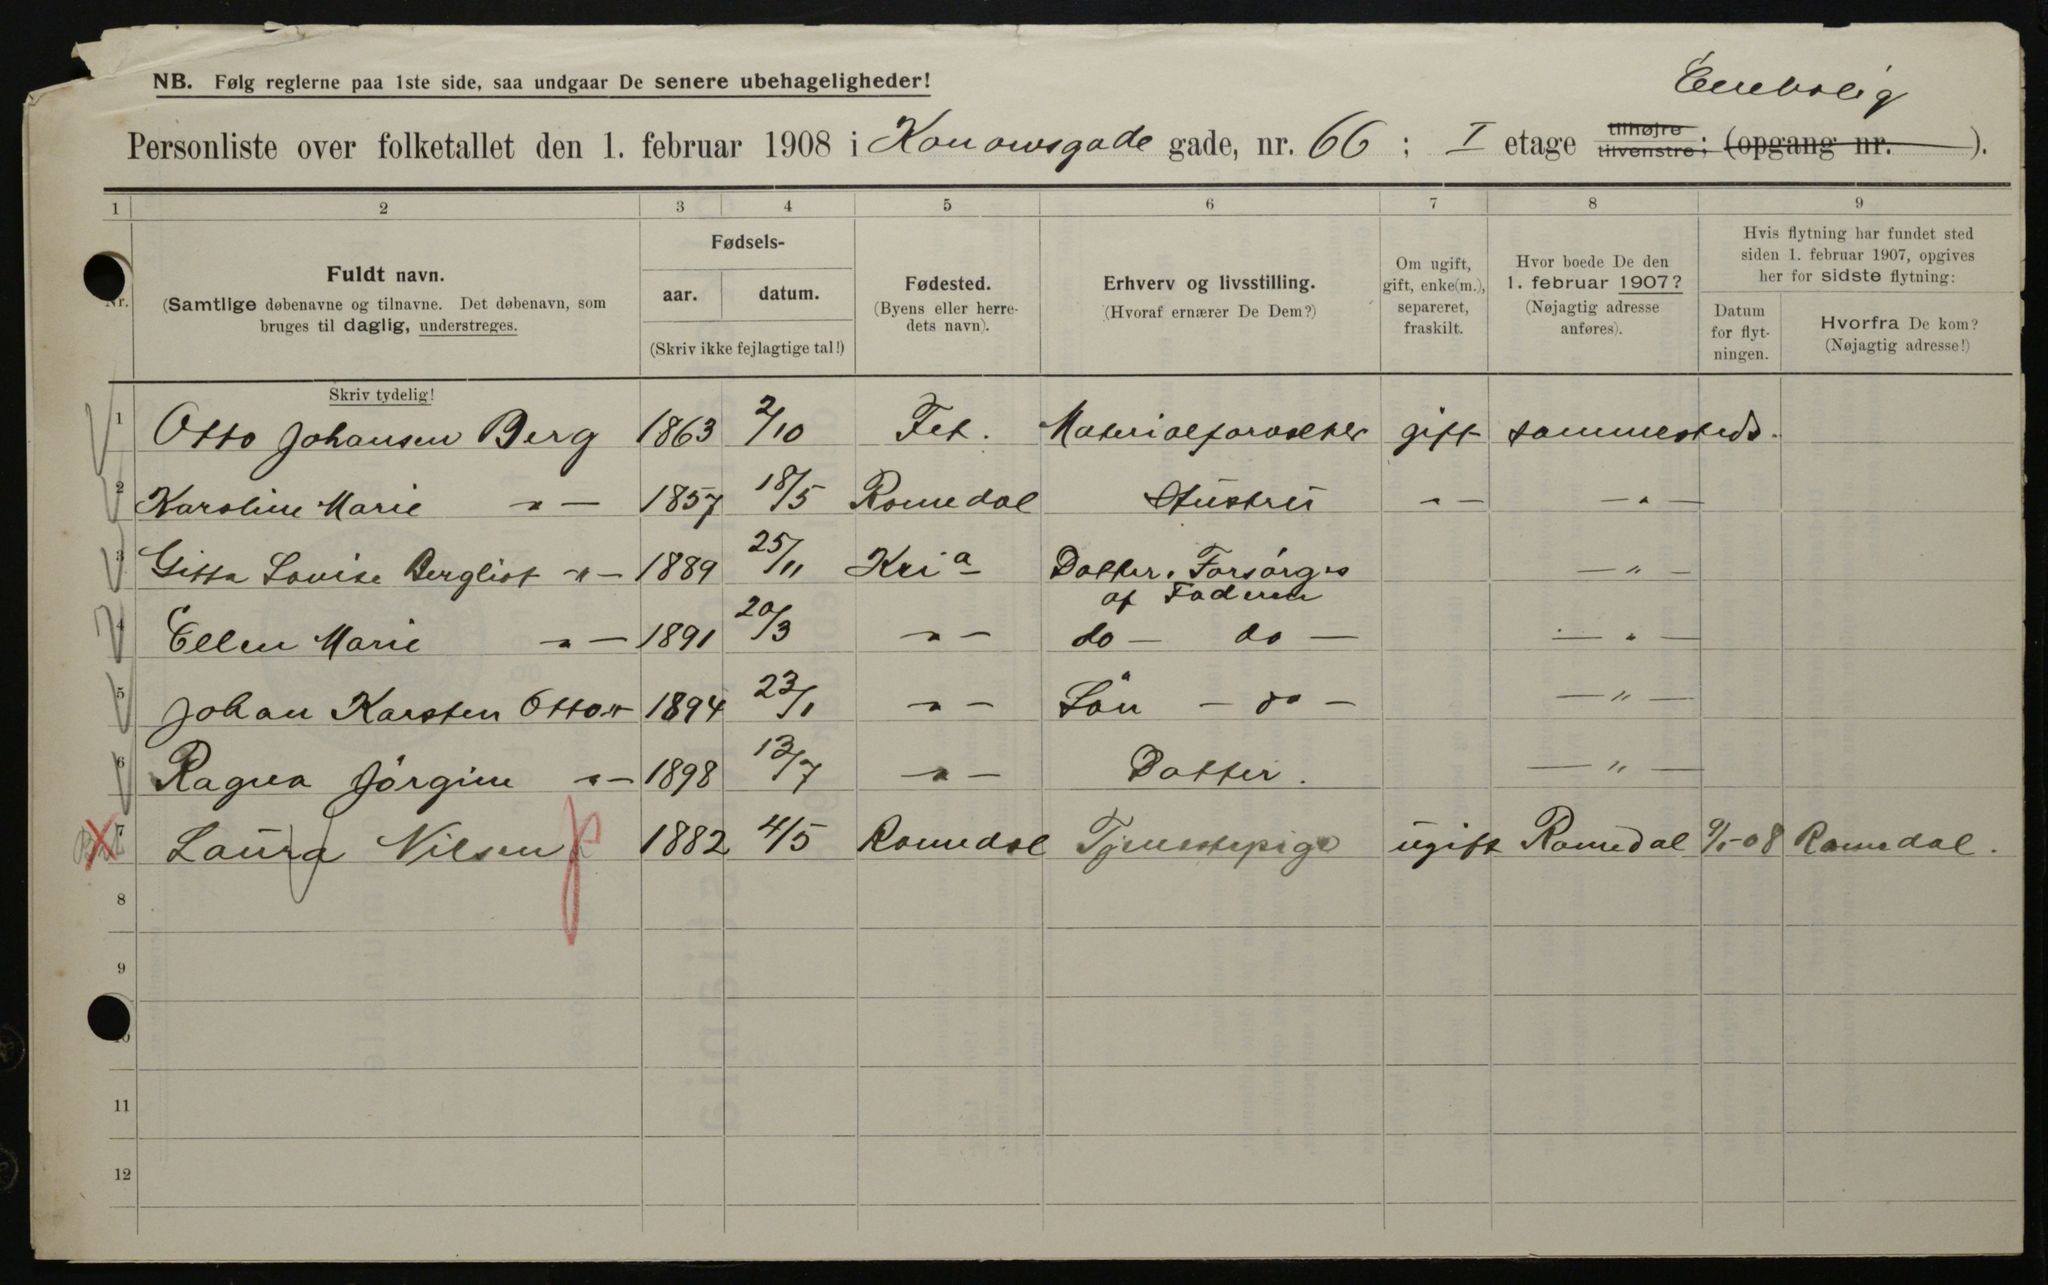 Enebolig
NB. Følg reglerne paa 1ste side, saa undgaar De senere ubehageligheder!
Personliste over folketallet den 1. februar 1908 i Konowsgade gade, nr. 66; I etage tilhøjre tilvenstre; (opgang nr. ).
1 2 3 4 5 6 7 8 9
Nr.
Fuldt navn.
(Samtlige døbenavne og tilnavne. Det døbenavn, som
bruges til daglig, understreges.
Skriv tydelig!
Fødsels-
aar. datum.
(Skriv ikke fejlagtige tal!)
Fødested.
(Byens eller herre-
dets navn).
Erhverv og livsstilling.
(Hvoraf ernærer De Dem?)
Om ugift,
gift, enke(m.),
separeret,
fraskilt.
Hvor boede De den
1. februar 1907?
(Nøjagtig adresse
anføres).
Hvis flytning har fundet sted
siden 1. februar 1907, opgives
her for sidste flytning:
Datum
for flyt-
ningen.
Hvorfra De kom?
(Nøjagtig adresse!)
1 Otto Johansen Berg 1863 2/10 Fet. Materialforvalter gift sammesteds.
2 Karoline Marie -"- 1857 18/5 Romedal Hustru -"- -"-
3 Gitta Lovise Bergliot -"- 1889 25/11 Kria Datter. Forsørges -"-
af Faderen
4 Ellen Marie -"- 1891 20/3 -"- do - do - -"-
5 Johan Karsten Otto " 1894 23/1 -"- Søn - do - -"-
6 Ragna Jørgine -"- 1898 13/7 -"- Datter. -"-
7 Laura Nilsen 1882 4/5 Romedal Tjenestepige ugift Romedal 9/1-08 Romedal.
8
9
10
11
12